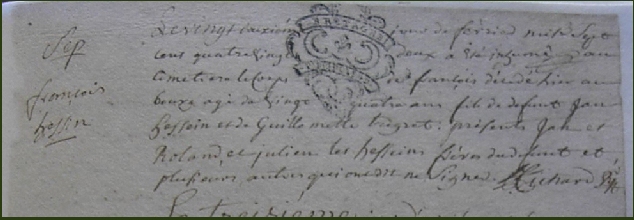 Sep
françois
hessin
Le vingt deuxieme jour de fevrier mile sept
cens quatre vingt deux a été inhumé au
cimetiere le corps de françois décédé hier au
bourg agé de vingt quatre ans fils de defunt Jan
hessein et de Guillemette tregret. présents Jan et
Roland, et julien les hesseins fréres du defunt et
plusieurs autres qui ont dit ne signer Richard